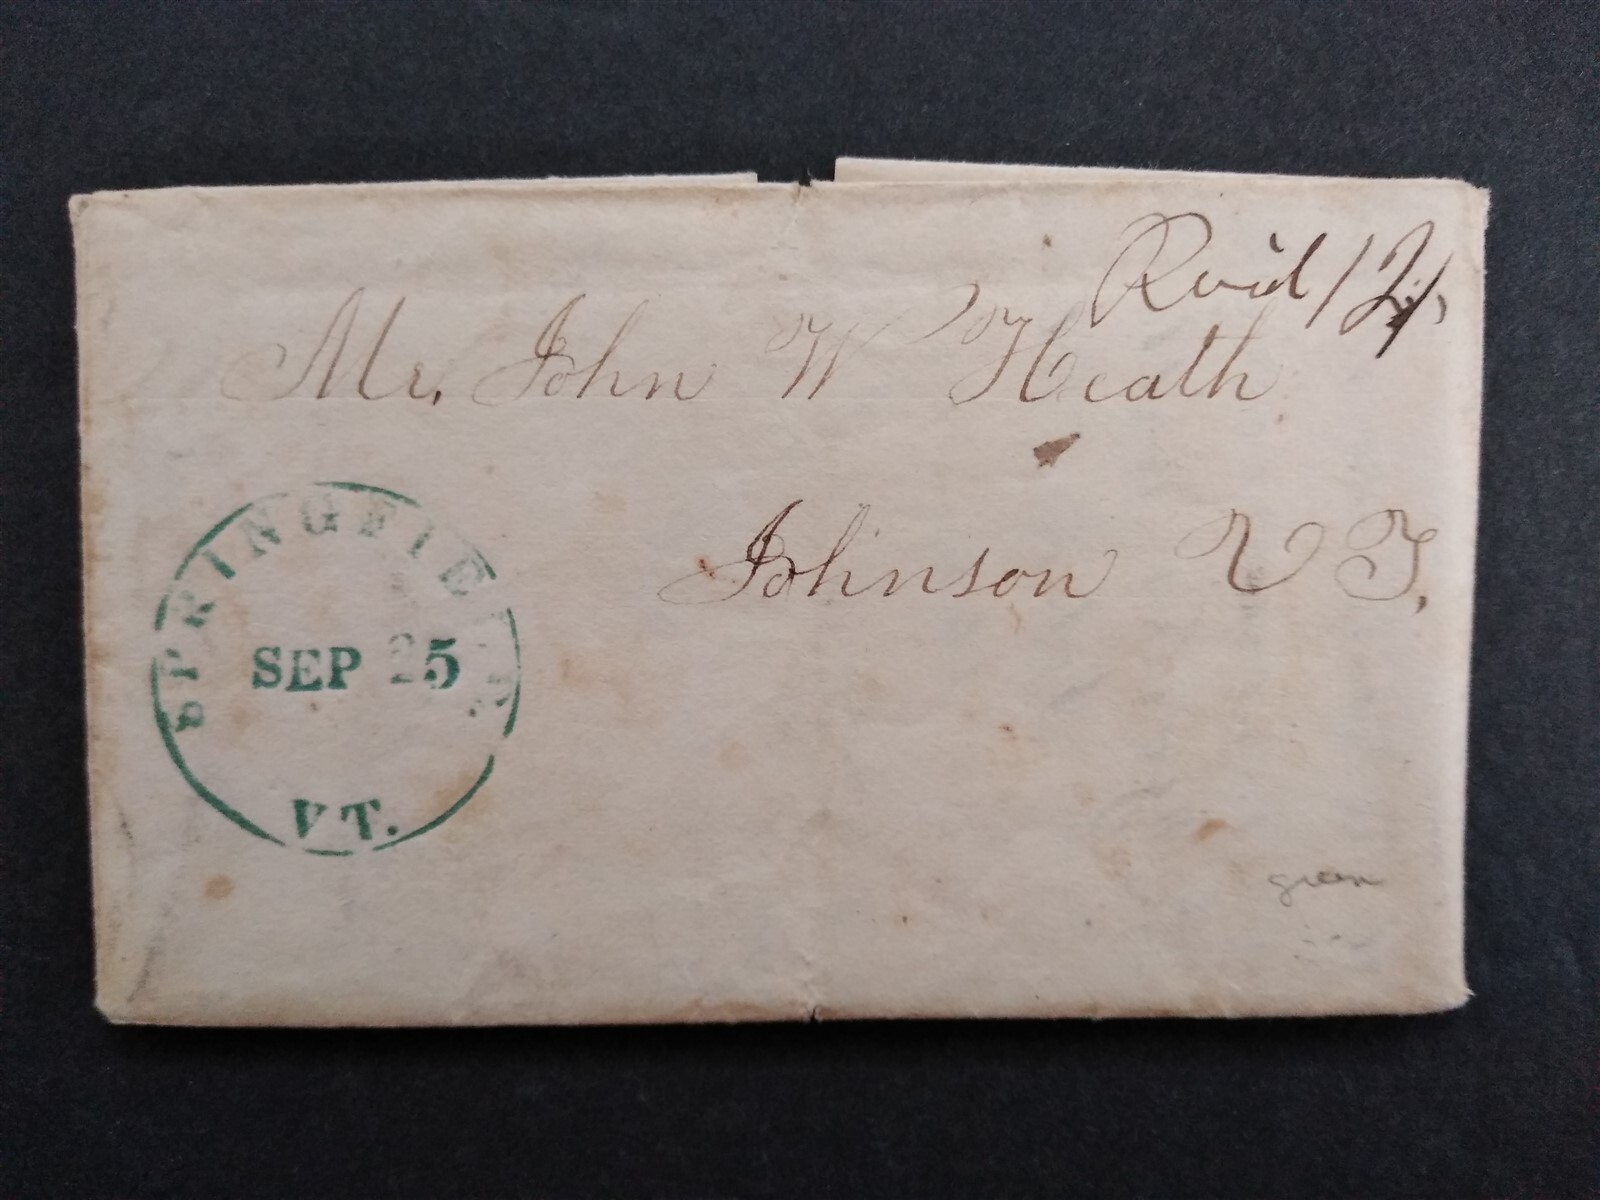 Mr. John W Heath
Johnson VT,
SPRINGFIELD
SEP 25
VT.
green